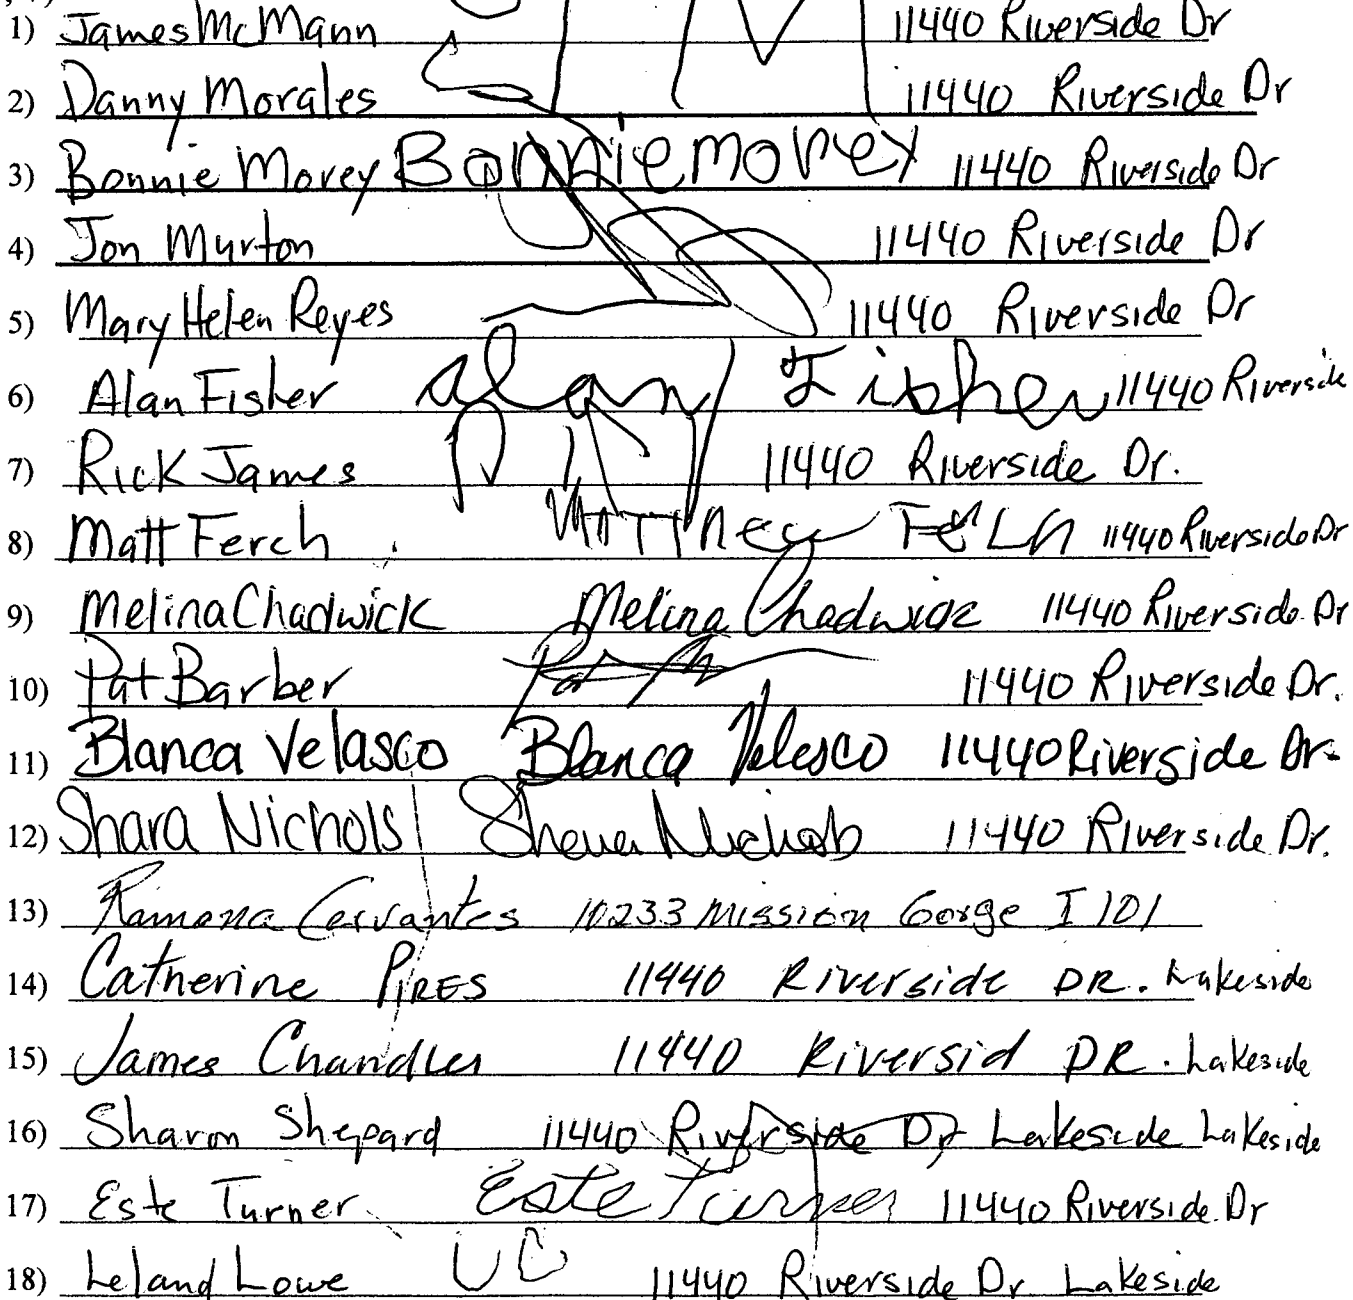 1) James McMann 11440 Riverside Dr
2) Danny Morales 11440 Riverside Dr
3) Bonnie Morey Bonnie morey 11440 Riverside Dr
4) Jon Murton 11440 Riverside Dr
5) Mary Helen Reyes 11440 Riverside Dr
6) Alan Fisher Alan Fisher 11440 Riverside
7) Rick James 11440 Riverside Dr.
8) Matt Ferch 11440 Riverside Dr
9) Melina Chadwick Melina Chadwick 11440 Riverside Dr
10) Pat Barber 11440 Riverside Dr.
11) Blanca Velasco Blanca Velesco 11440 Riverside Dr.
12) Shara Nichols Nichols 11440 Riverside Dr.
13) Ramona Cervantes 10233 Mission Gorge I 101
14) Catherine PIRES 11440 Riverside DR. Lakeside
15) James Chandler 11440 Riversid DR. Lakeside
16) Sharon Shepard 11440 Riverside Dr Lakeside Lakeside
17) Este Turner Este Turner 11440 Riverside Dr
18) Leland Lowe 11440 Riverside Dr Lakeside